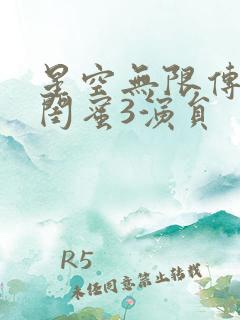 星空無限傳
閨蜜3演員
R5
未任同意禁止转载